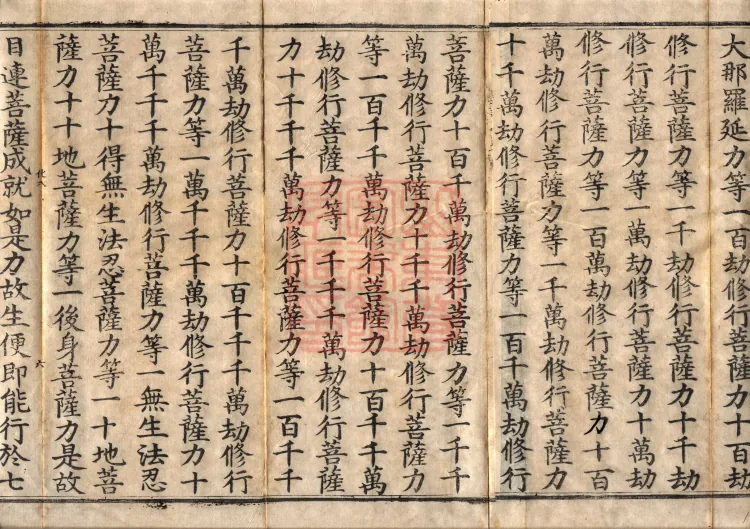 大那羅延力等一百劫修行菩薩力十百劫
修行菩薩力等一千劫修行菩薩力十千劫
修行菩薩力等一萬劫修行菩薩力十萬劫
修行菩薩力等一百萬劫修行菩薩力十百
萬劫修行菩薩力等一千萬劫修行菩薩力
十千萬劫修行菩薩力等一百千萬劫修行
菩薩力十百千萬劫修行菩薩力等一千千
萬劫修行菩薩力十千千萬劫修行菩薩力
等一百千千萬劫修行菩薩力十百千千萬
劫修行菩薩力等一千千千萬劫修行菩薩
力十千千千萬劫修行菩薩力等一百千千
千萬劫修行菩薩力十百千千千萬劫修行
菩薩力等一萬千千千萬劫修行菩薩力十
萬千千千萬劫修行菩薩力等一無生法忍
菩薩力十得無生法忍菩薩力等一十地菩
薩力十十地菩薩力等一後身菩薩力是故
目連菩薩成就如是力故生便即能行於七